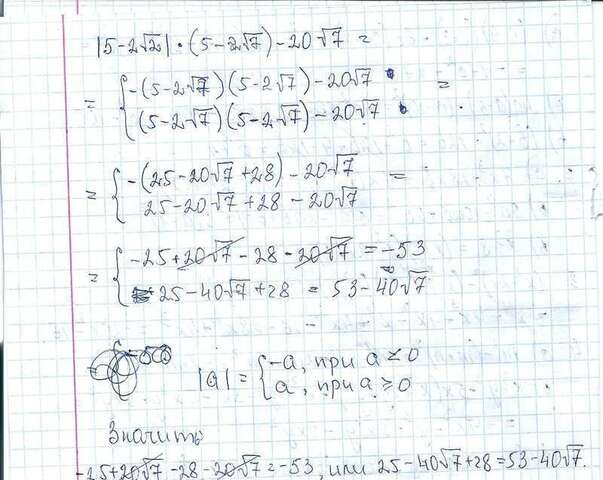 |5-2√2|·(5-2√7)-20√7 =
= { -(5-2√7)(5-2√7)-20√7 =
(5-2√7)(5-2√7)-20√7
= { -(25-20√7+28)-20√7 =
25-20√7+28-20√7
= { -25+20√7-28-20√7 = -53
25-40√7+28 = 53-40√7
|a| = { -a, при a < 0
a, при a ≥ 0
Значить
-25+20√7-28-20√7=-53, или 25-40√7+28=53-40√7.